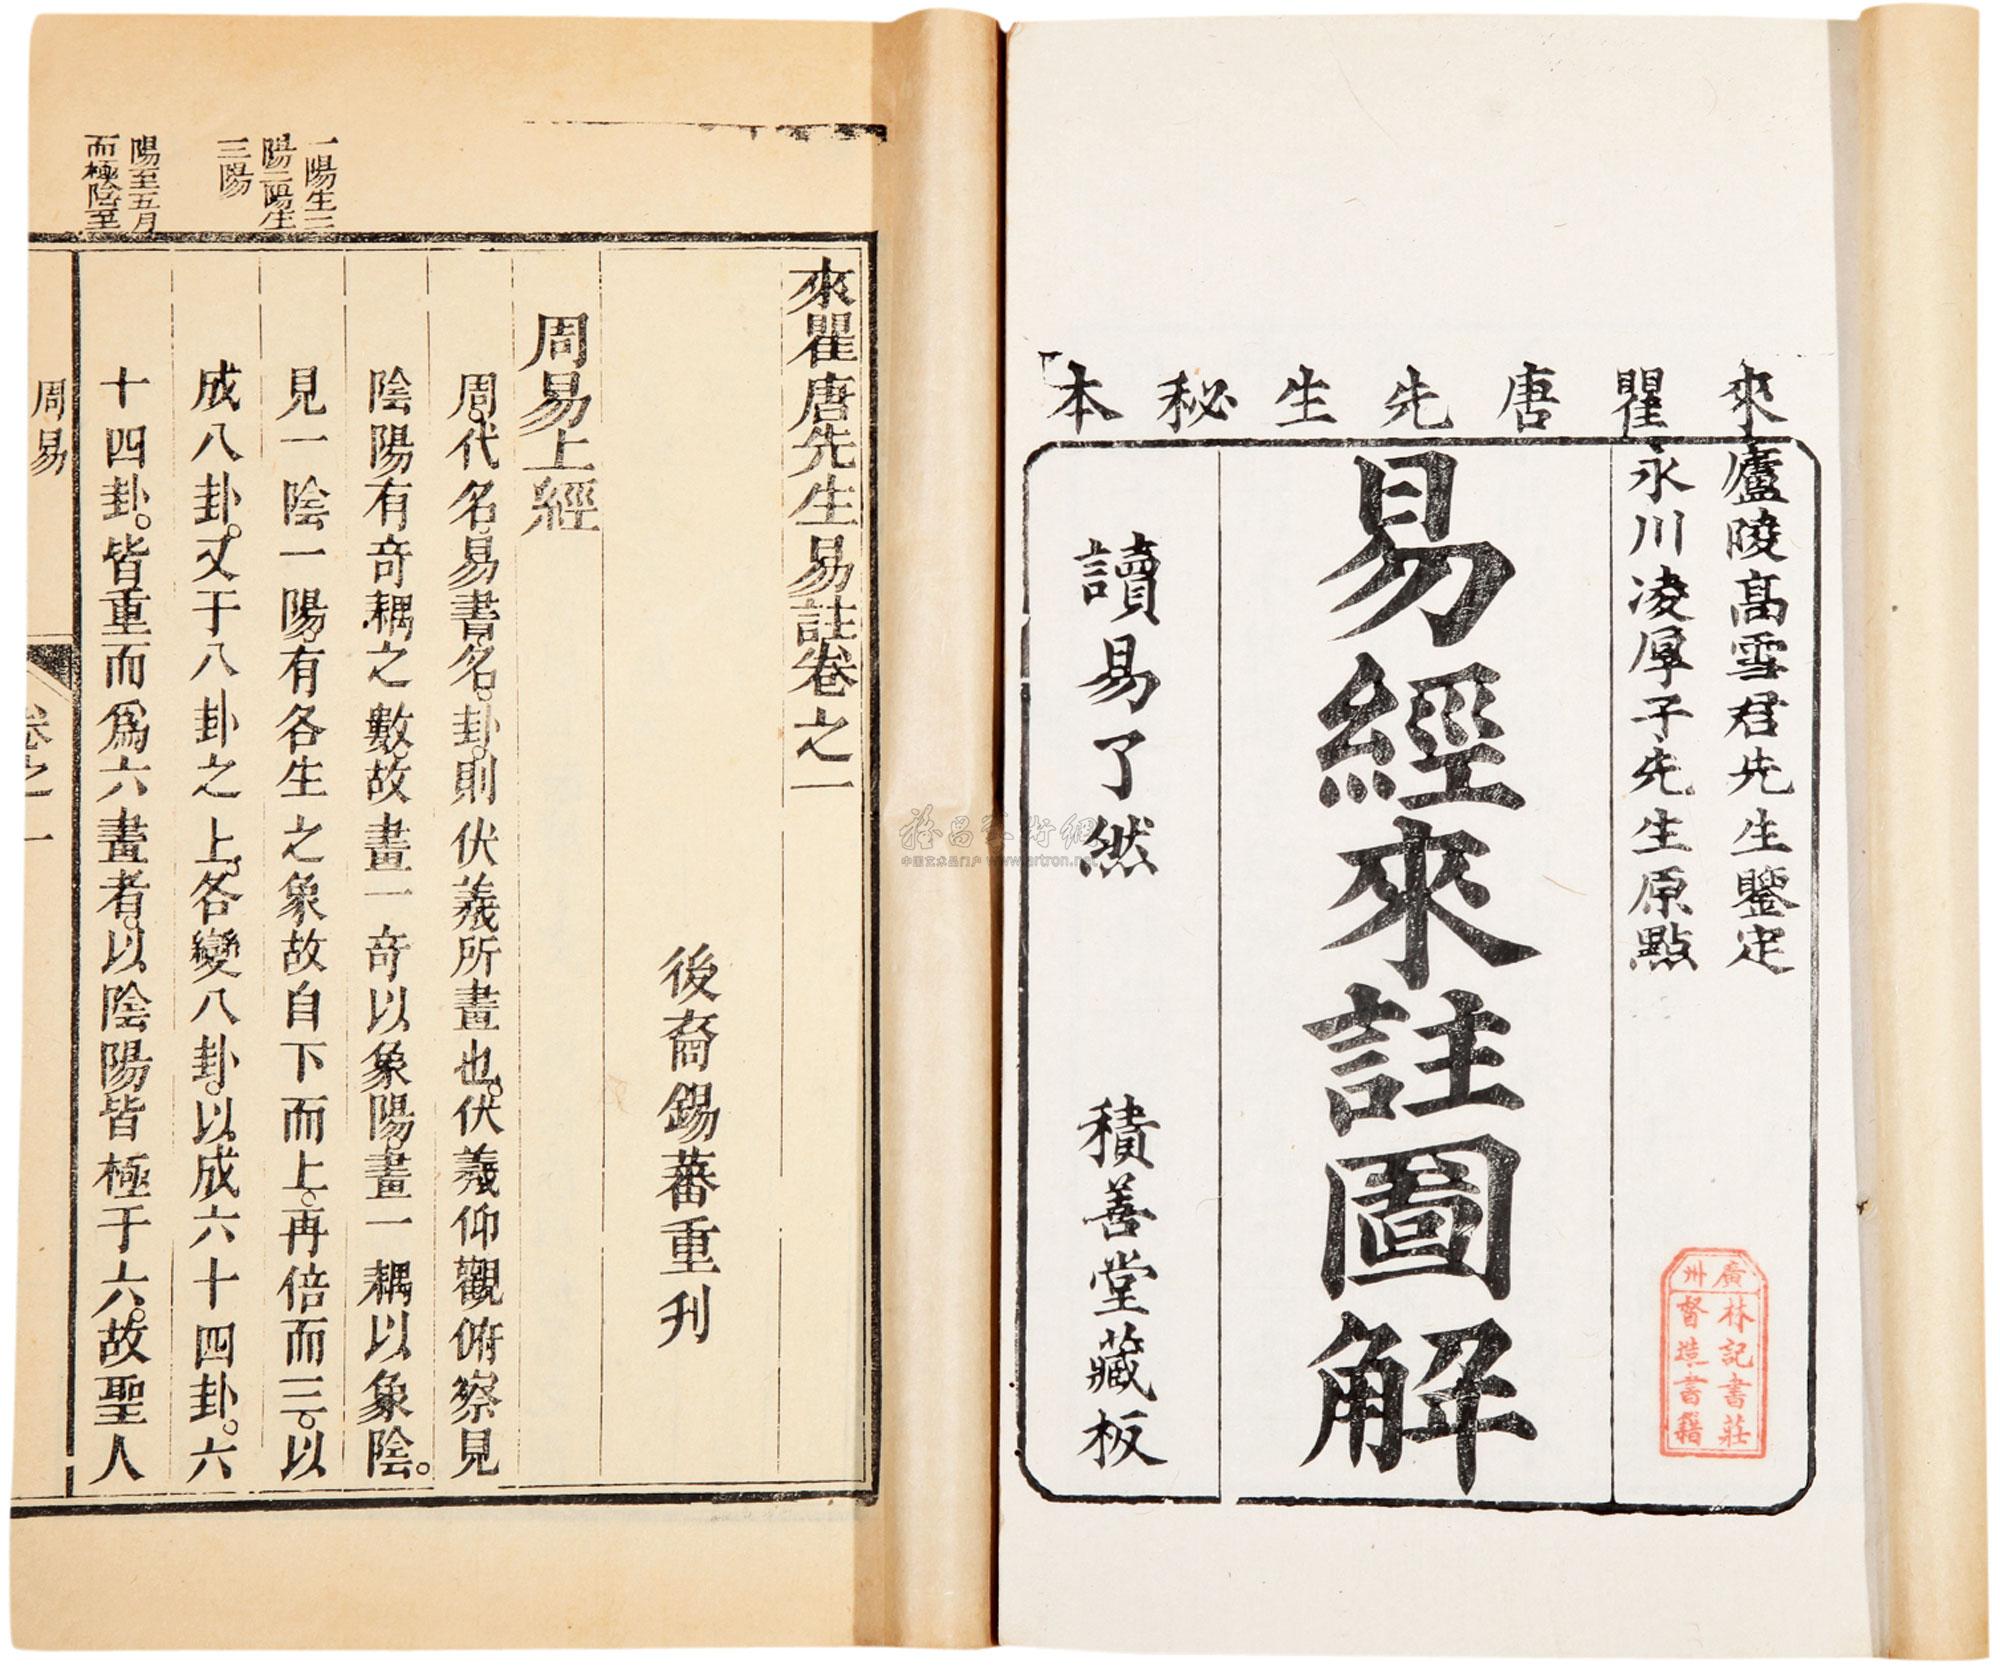 來瞿唐先生秘本
廬陵高雪君先生鑒定
永川凌厚子先生原點
易經來註圖解
讀易了然 積善堂藏板
廣州
林記書莊
督造書籍
來瞿唐先生易註卷之一
後裔錫蕃重刊
周易上經
周。代名。易書名。卦。則伏羲所畫也。伏羲仰觀俯察見
陰陽有奇耦之數。故畫一奇以象陽。畫一耦以象陰。
見一陰一陽。有各生之象故自下而上。再倍而三。以
成八卦。又于八卦之上。各變八卦。以成六十四卦。六
十四卦。皆重而爲六畫者。以陰陽皆極于六。故聖人
一陽生二
陽二陽生
三陽
陽至五月
而極陰至
周易
卷之一
中国艺术品门户 www.artron.net